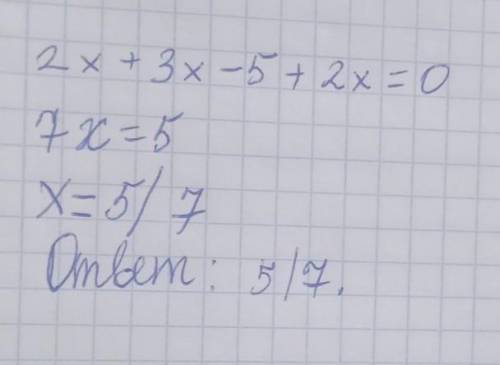 2x + 3x - 5 + 2x = 0
7x = 5
x = 5/7
Ответ: 5/7.